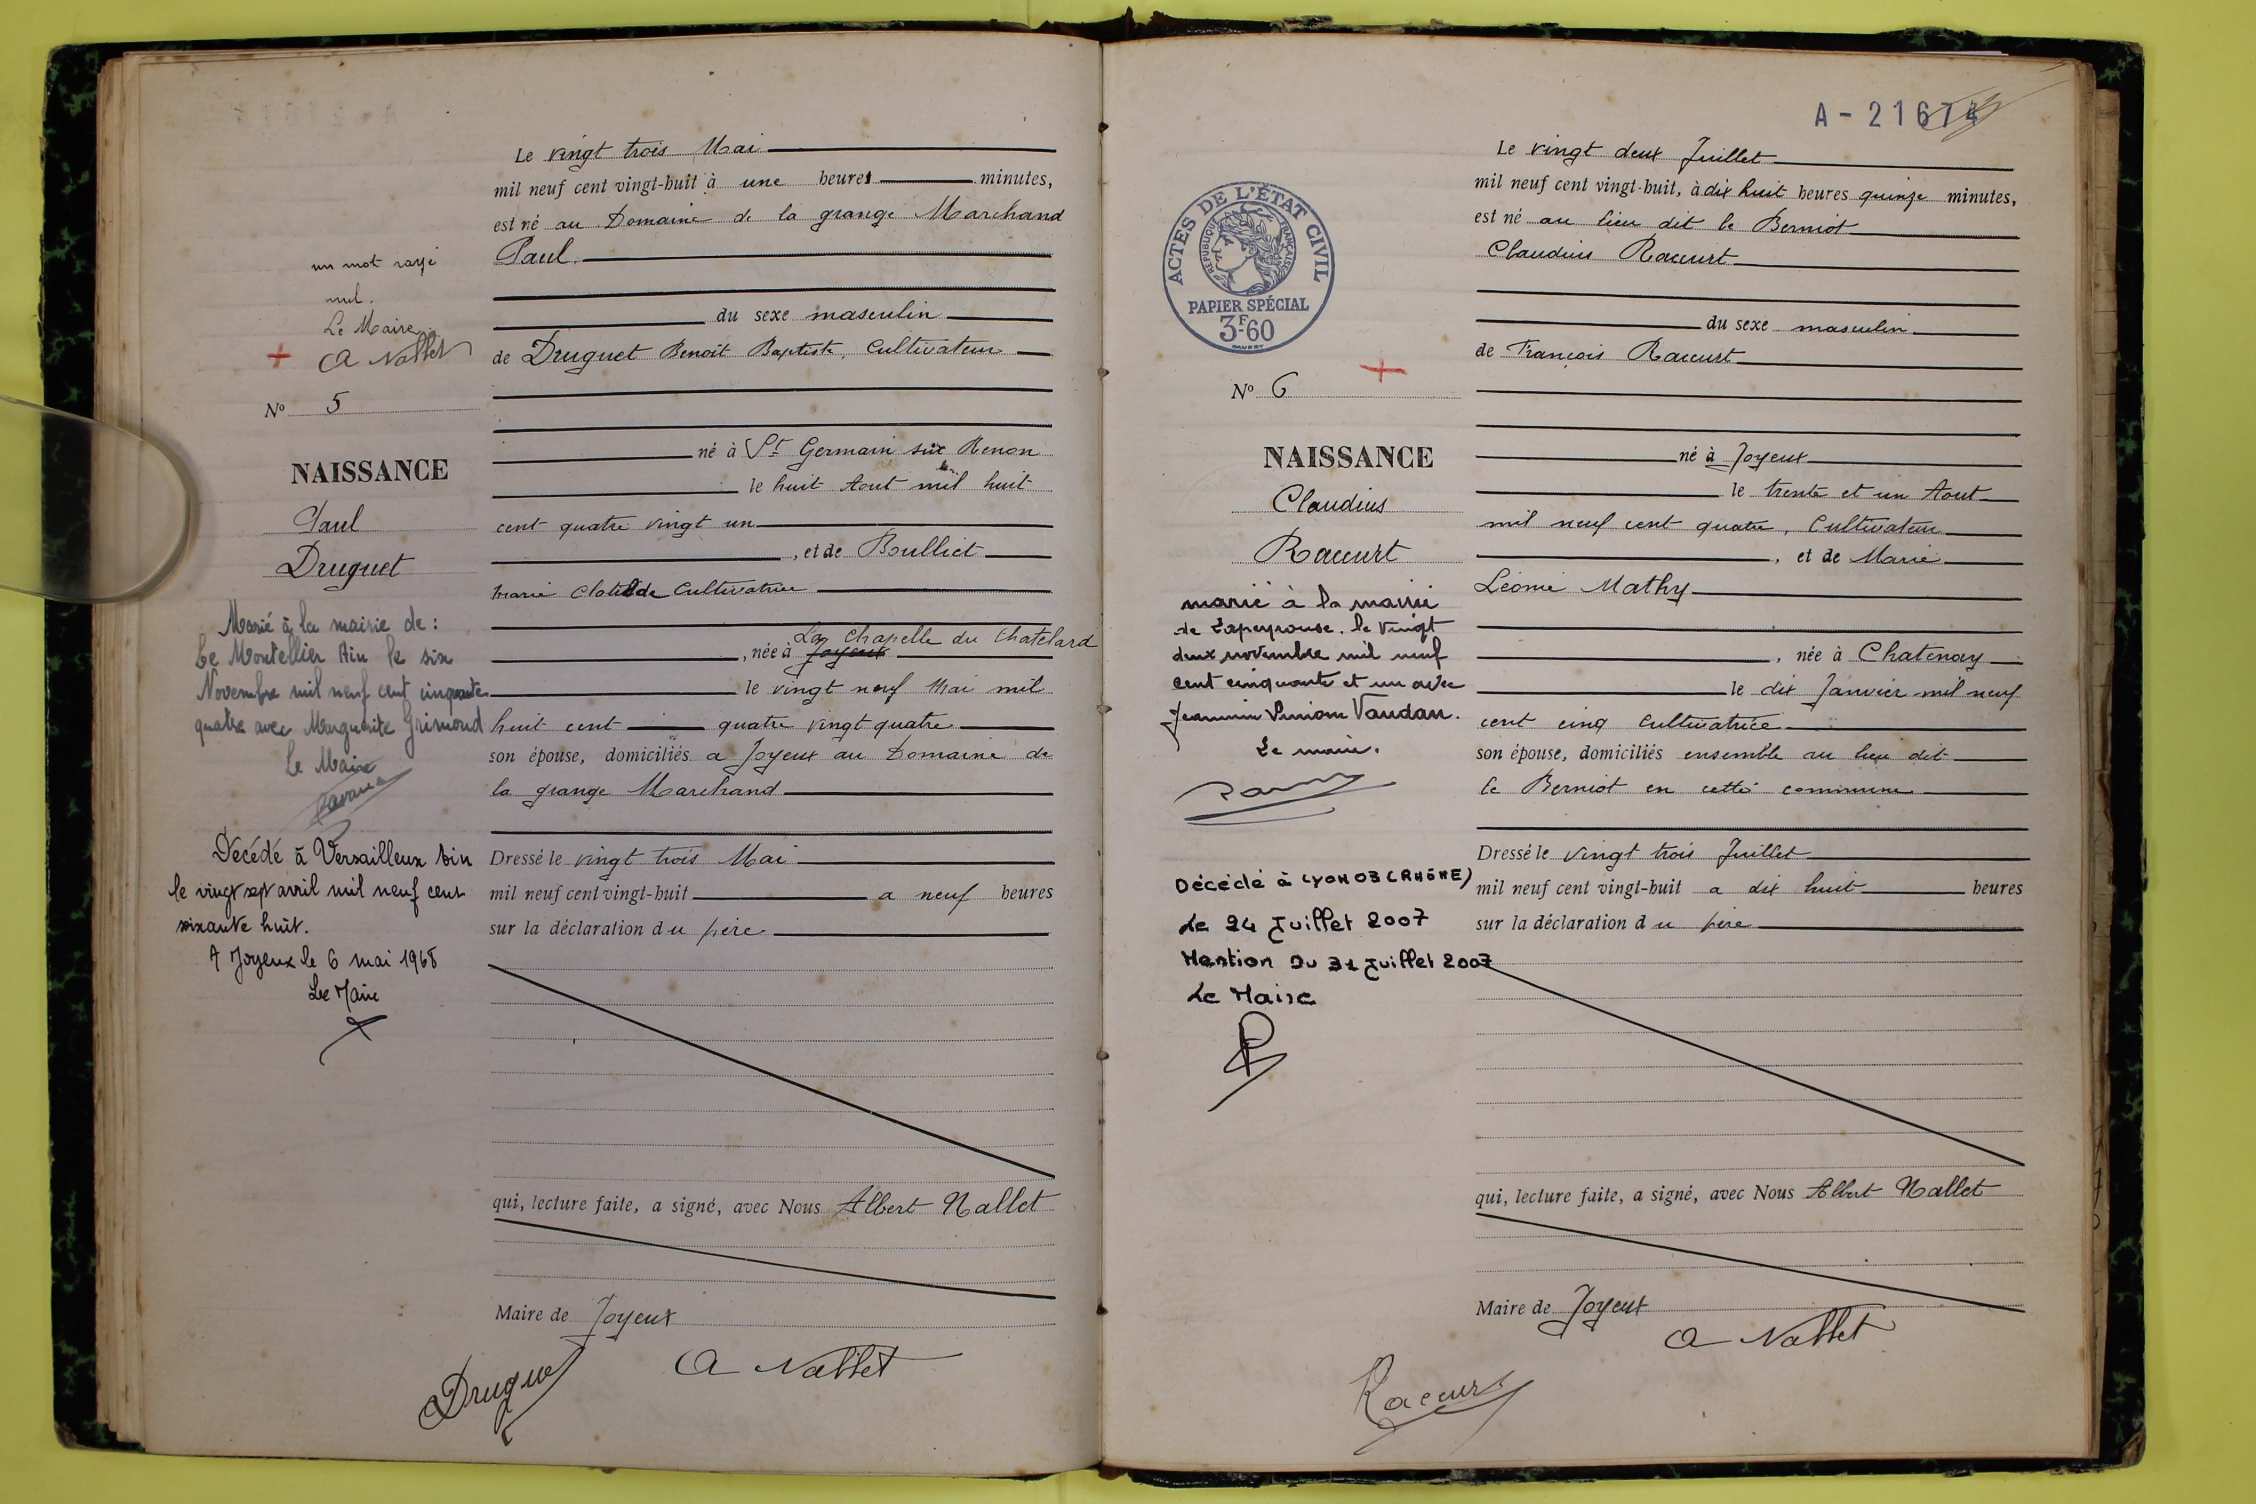 Le vingt trois Mai
mil neuf cent vingt-huit à une heures minutes,
est né au Domaine de la grange Marchand
Paul
du sexe masculin
de Druguet Benoit Baptiste, Cultivateur
né à St Germain sur Renon
le huit Aout mil huit
cent quatre vingt un
, et de Boulliet
Marie Clotilde Cultivatrice
La Chapelle du Chatelard
, née à Joyeux
le vingt neuf Mai mil
huit cent quatre vingt quatre
son épouse, domiciliés a Joyeux au Domaine de
la grange Marchand
Dressé le vingt trois Mai
mil neuf cent vingt-huit a neuf heures
sur la déclaration du père
qui, lecture faite, a signé, avec Nous Albert Nallet
Maire de Joyeux
A Nallet
Druguet
un mot rayé
nul.
Le Maire
A Nallet
No 5
NAISSANCE
Paul
Druguet
Marié à la mairie de :
Le Montellier Ain le six
Novembre mil neuf cent cinquante
quatre avec Marguerite Grimond
Le Maire
Décédé à Versailleux Ain
le vingt sept avril mil neuf cent
soixante huit.
A Joyeux le 6 mai 1968
Le Maire
A-21674
ACTES DE L'ÉTAT CIVIL
RÉPUBLIQUE FRANÇAISE
PAPIER SPÉCIAL
3F.60
No 6
NAISSANCE
Claudius
Raccurt
marié à la mairie
de Lapeyrouse. le vingt
deux novembre mil neuf
cent cinquante et un avec
Vaudan.
Le maire.
Décédé à LYON 03 (RHÔNE)
Le 24 Juillet 2007
Mention Du 31 Juillet 2007
Le Maire
Le vingt deux Juillet
mil neuf cent vingt-huit, à dix huit heures quinze minutes,
est né au lieu dit le Berniot
Claudius Raccurt
du sexe masculin
de François Raccurt
né à Joyeux
le trente et un Aout
mil neuf cent quatre, Cultivateur
, et de Marie
Léonie Mathy
, née à Chatenay
le dix Janvier mil neuf
cent cinq Cultivatrice
son épouse, domiciliés ensemble au lieu dit
le Berniot en cette commune
Dressé le vingt trois Juillet
mil neuf cent vingt-huit a dix huit heures
sur la déclaration du père
qui, lecture faite, a signé, avec Nous Albert Nallet
Maire de Joyeux
A Nallet
Raccurt